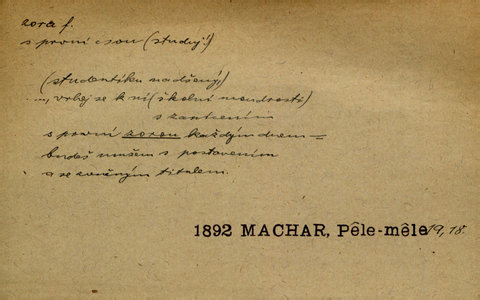 zora f.
s první zorou (studuj!)
(studentíku nadšený,)
...., vrhej se k ní (školní moudrosti)
s zanícením
s první zorou každým dnem =
budeš mužem s postavením
a se zvučným titulem.
1892 MACHAR, Pêle-mêle 19, 18.